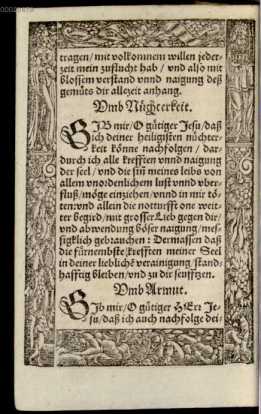 tragen/mit volkomnem willen jeder-
zeit mein zuflucht hab / vnd also mit
blossem verstand vnnd naigung deß
gemüts dir allezeit anhang.
Vmb Nüchterkeit.
GIB mir/O gütiger Jesu/daß
ich deiner heiligisten nüchter-
keit könne nachfolgen / dar-
durch ich alle krefften vnnd naigung
der seel / vnd die sin̄ meines leibs von
allem vnordenlichem lust vnnd vber-
fluß/möge einziehen/vnnd in mir tö-
ten:vnd allein die notturfft one weit-
ter begird/mit grosser Lieb gegen dir/
vnd abwendung böser naigung/mes-
sigklich gebrauchen: Dermassen daß
die fürnembste krefften meiner Seel
in deiner lieblichē verainigung stand-
hafftig bleiben/vnd zu dir seufftzen.
Vmb Armut.
GIb mir/O gütiger HErr Je-
su/daß ich auch nachfolge dei-